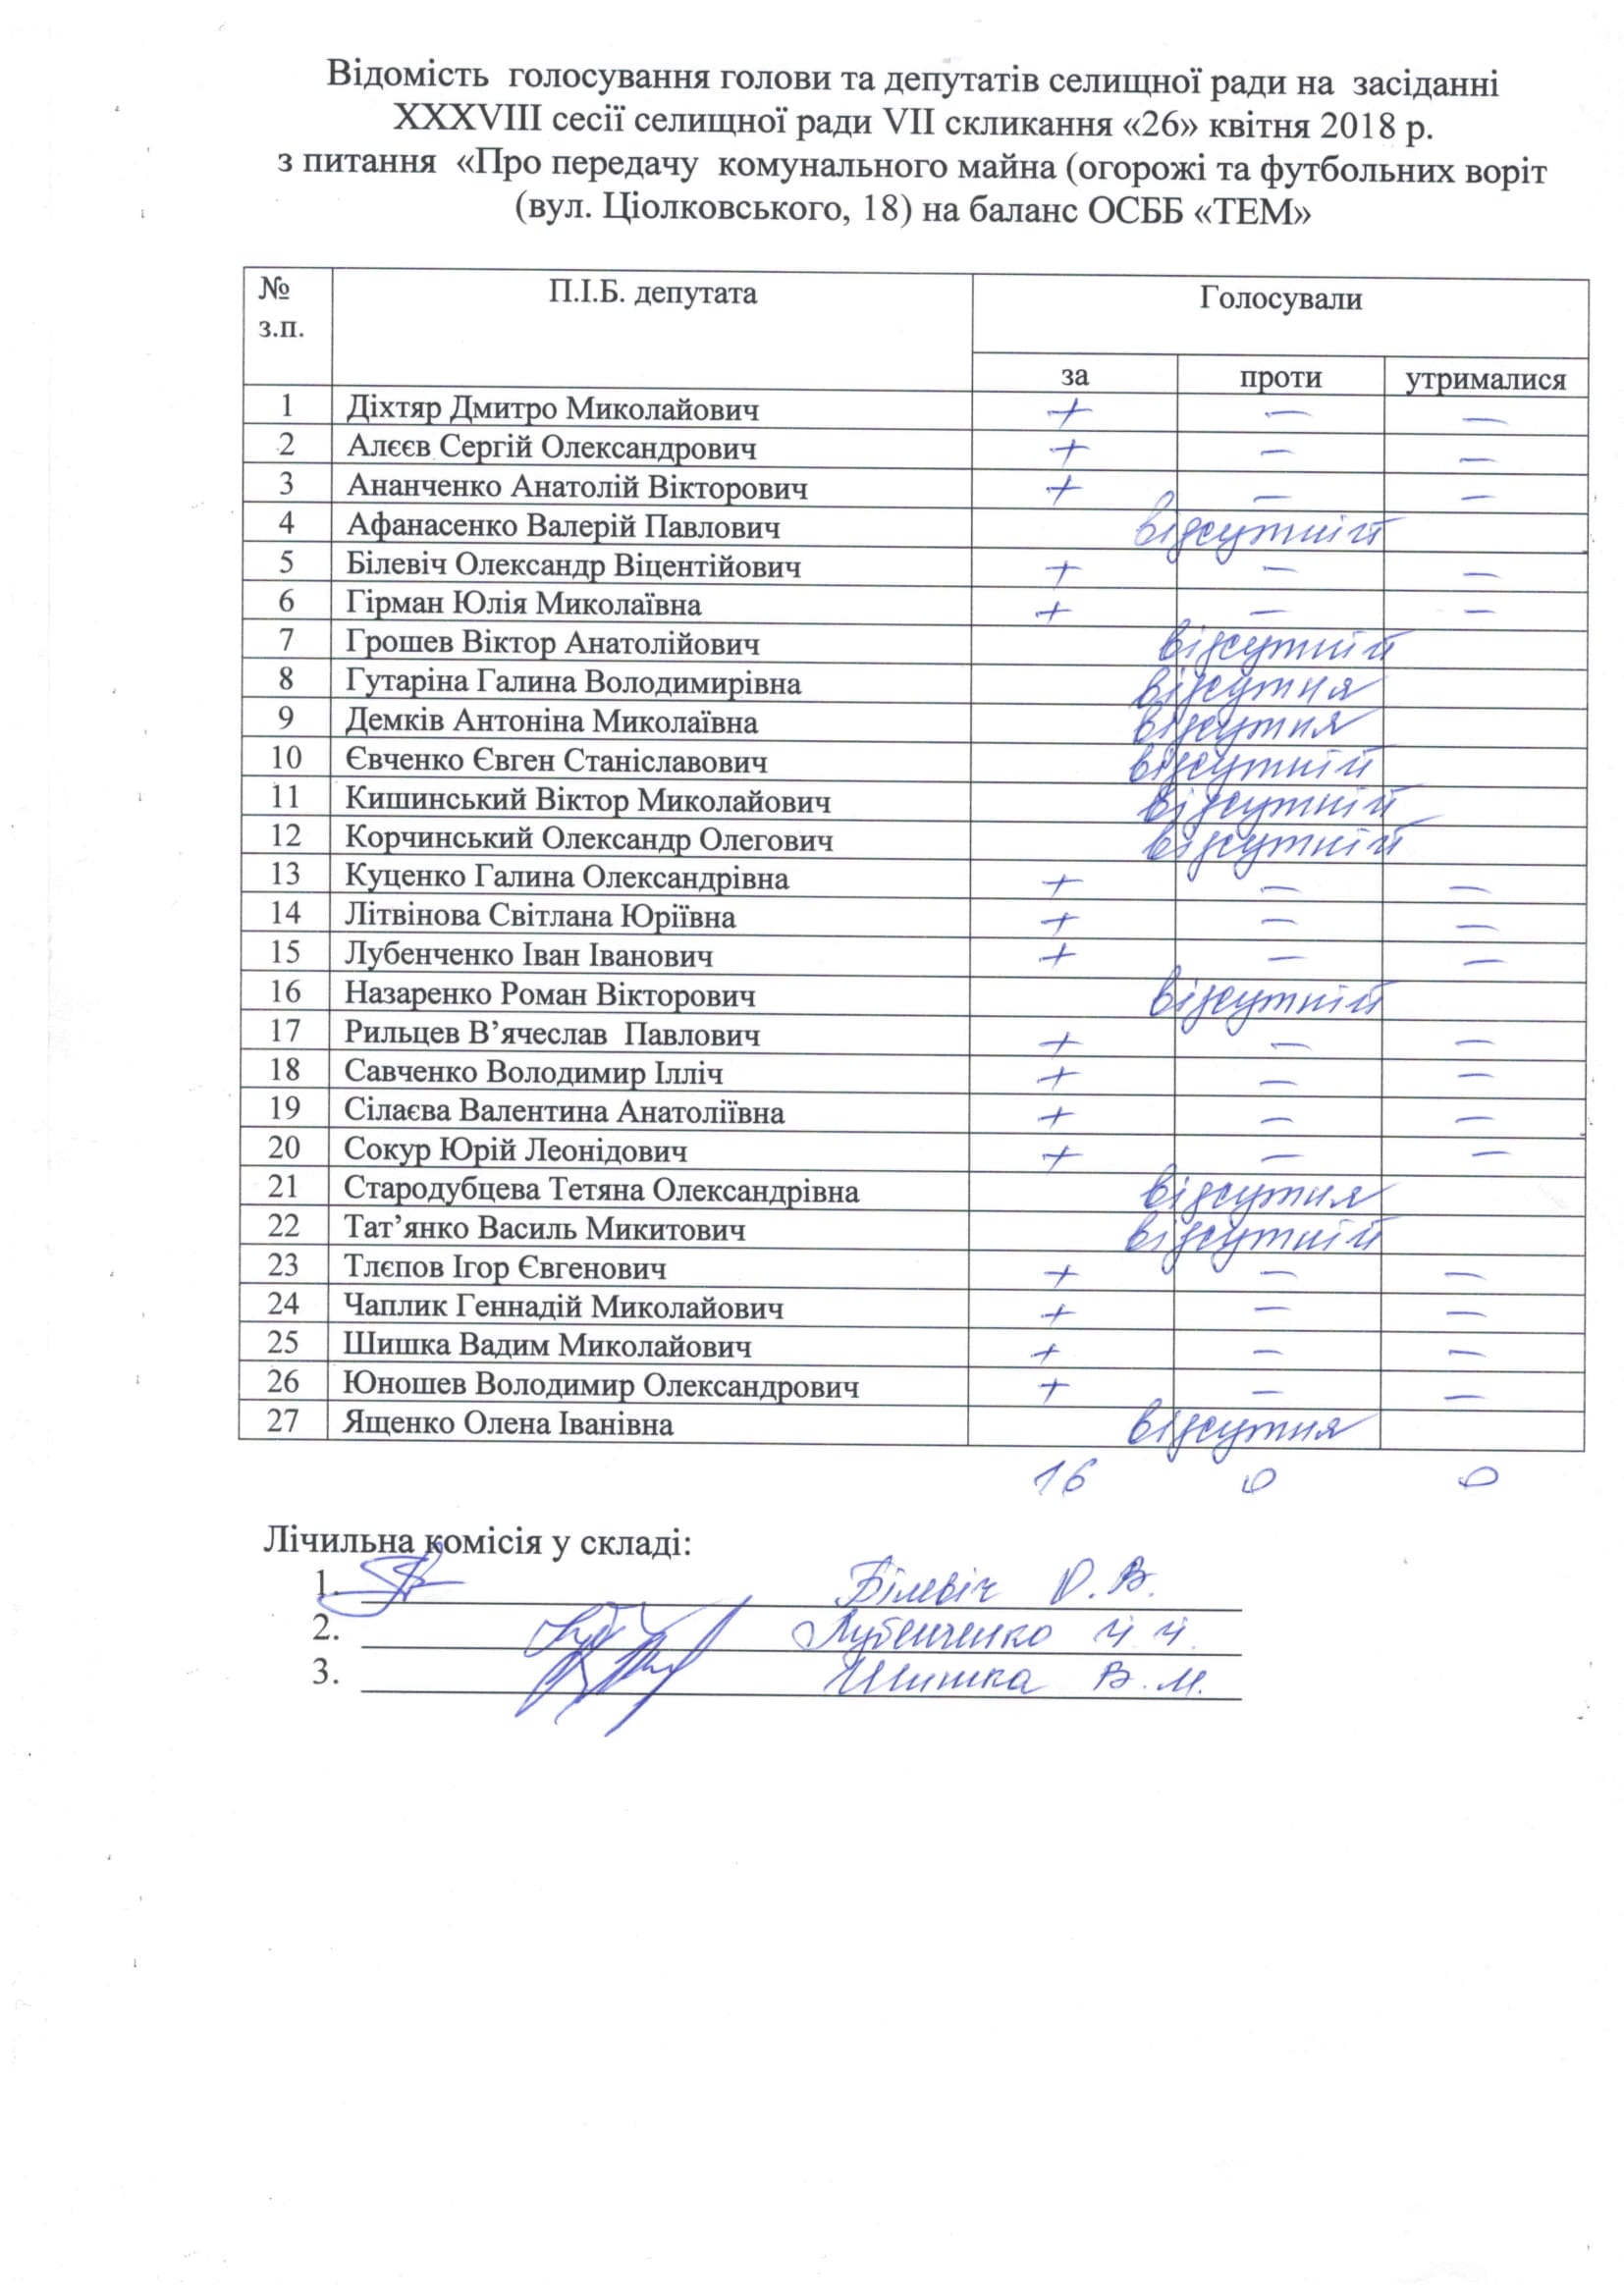 Відомість голосування голови та депутатів селищної ради на засіданні
XXXVIII сесії селищної ради VII скликання «26» квітня 2018 р.
з питання «Про передачу комунального майна (огорожі та футбольних воріт
(вул. Ціолковського, 18) на баланс ОСББ «ТЕМ»
№ з.п. П.І.Б. депутата Голосували
за проти утрималися
1 Діхтяр Дмитро Миколайович + — —
2 Алєєв Сергій Олександрович + — —
3 Ананченко Анатолій Вікторович + — —
4 Афанасенко Валерій Павлович відсутній
5 Білевіч Олександр Віцентійович + — —
6 Гірман Юлія Миколаївна + — —
7 Грошев Віктор Анатолійович відсутній
8 Гутаріна Галина Володимирівна відсутня
9 Демків Антоніна Миколаївна відсутня
10 Євченко Євген Станіславович відсутній
11 Кишинський Віктор Миколайович відсутній
12 Корчинський Олександр Олегович відсутній
13 Куценко Галина Олександрівна + — —
14 Літвінова Світлана Юріївна + — —
15 Лубенченко Іван Іванович + — —
16 Назаренко Роман Вікторович відсутній
17 Рильцев В’ячеслав Павлович + — —
18 Савченко Володимир Ілліч + — —
19 Сілаєва Валентина Анатоліївна + — —
20 Сокур Юрій Леонідович + — —
21 Стародубцева Тетяна Олександрівна відсутня
22 Тат’янко Василь Микитович відсутній
23 Тлєпов Ігор Євгенович + — —
24 Чаплик Геннадій Миколайович + — —
25 Шишка Вадим Миколайович + — —
26 Юношев Володимир Олександрович + — —
27 Ященко Олена Іванівна відсутня
16 0 0
Лічильна комісія у складі:
1. Білевіч О. В.
2. Лубенченко И. И.
3. Шишка В. М.